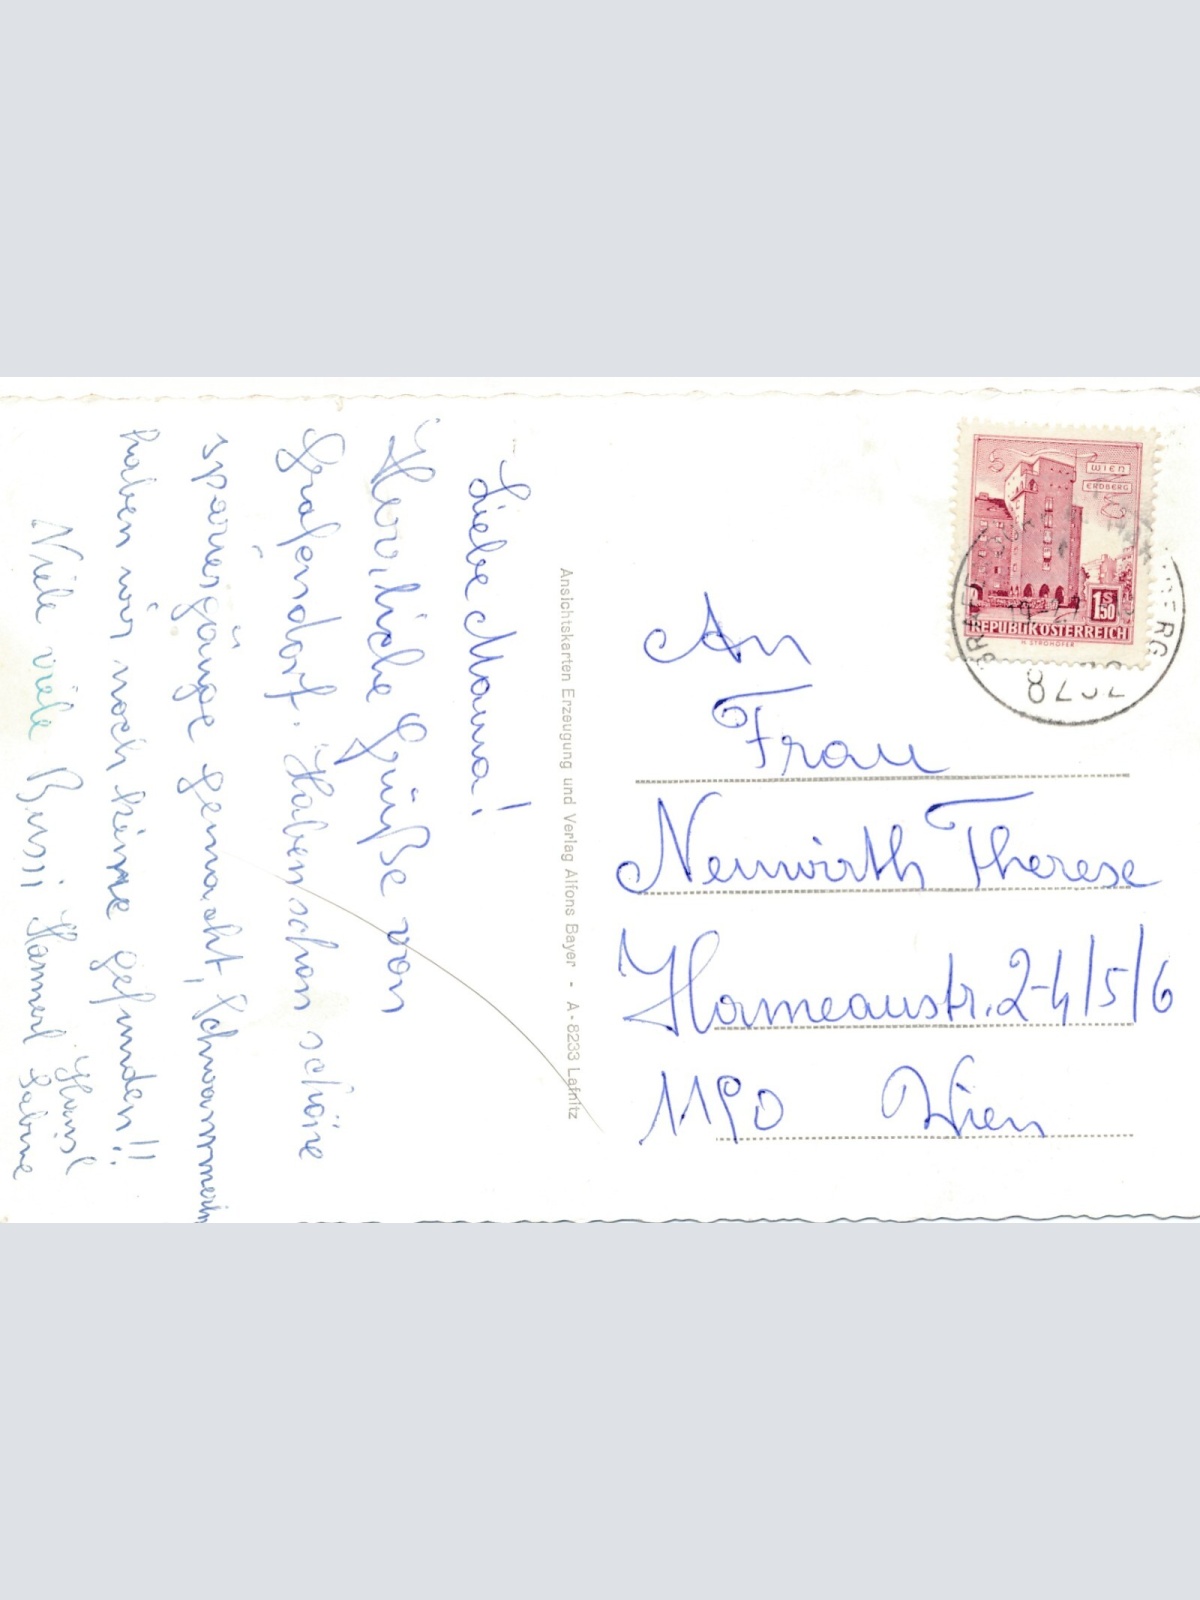 Liebe Mama!
Herrliche Grüße von
Grafendorf. Haben schon schöne
spaziergänge gemacht, Schwammerln
haben wir noch keine gefunden!!
Viele viele Bussi Hannerl Hansl
Sabine
Ansichtskarten Erzeugung und Verlag Alfons Bayer - A-8233 Lafnitz
WIEN
ERDBERG
1S50
REPUBLIK ÖSTERREICH
H. STROHOFER
8232
An
Frau
Neuwirth Therese
Hameaustr. 2-4/5/6
1190 Wien